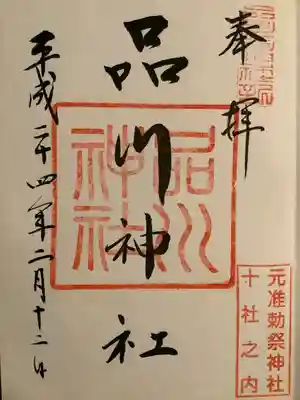 奉拝
元准勅祭神社
十社之内
品川神社
品川神社
平成二十四年十二月十二日